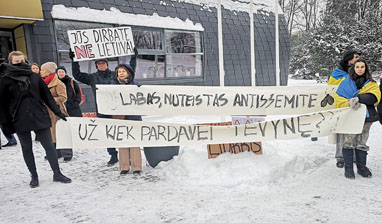 JŪS DIRBATE
NE LIETUVAI
LABAS, NUTEISTAS ANTISEMITE
UŽ KIEK PARDAVEI TĖVYNĘ?